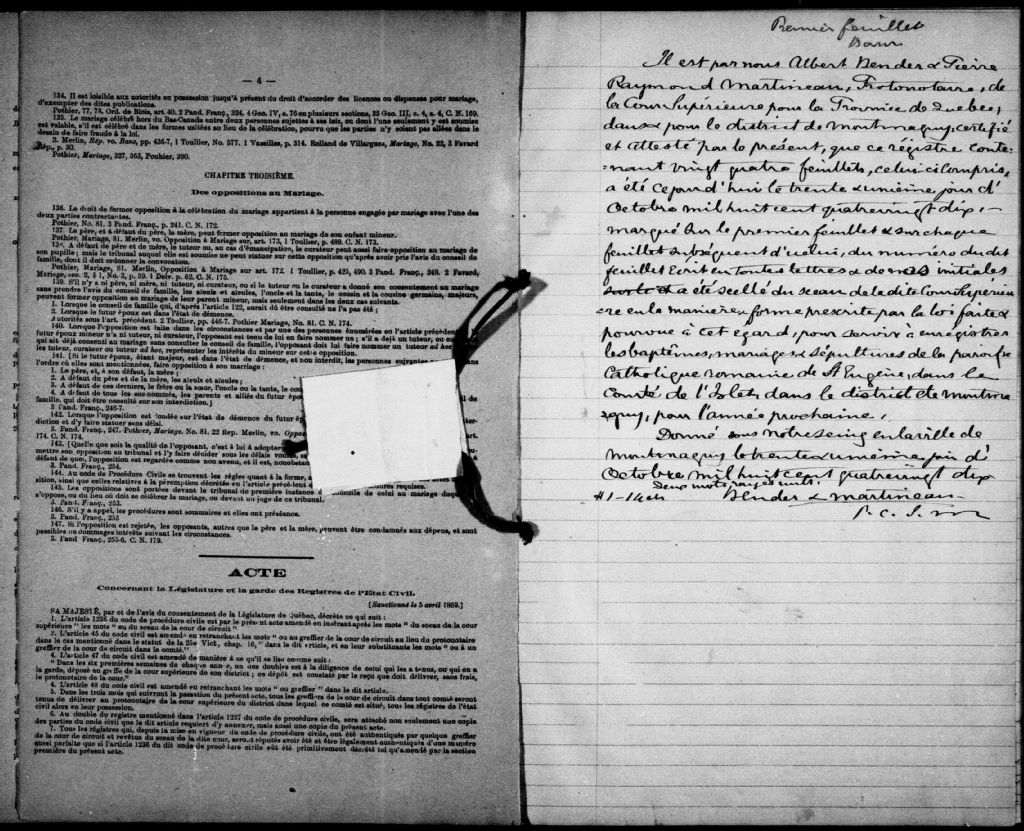 — 4 —
134. Il est loisible aux autorités en possession jusqu'à présent du droit d'accorder des licences ou dispenses pour mariage,
d'exempter des dites publications.
Pothier, 77, 78, Ord. de Blois, art. 40. 2 Pand. Franç., 324. 4 Geo. IV, c. 75 en plusieurs sections, 35 Geo. III, c. 4, s. 4, C. N. 169.
135. Le mariage célébré hors du Bas-Canada entre deux personnes sujettes à ses lois, ou dont l'une seulement y est soumise
est valable, s'il est célébré dans les formes usitées au lieu de la célébration, pourvu que les parties n'y soient pas allées dans le
dessin de faire fraude à la loi.
2. Merlin, Rép. vo. Bans, pp. 436-7, 1 Toullier, No. 577. 1 Vazeilles, p. 314. Rolland de Villargues, Mariage, No. 22, 3 Favard
Rép., p. 30.
Pothier, Mariage, 327, 363, Pouhier, 390.
CHAPITRE TROISIÈME.
Des oppositions au Mariage.
136. Le droit de former opposition à la célébration du mariage appartient à la personne engagée par mariage avec l'une des
deux parties contractantes.
Pothier, No. 81. 3 Pand. Franç., p. 241. C. N. 172.
137. Le père, et à défaut du père, la mère, peut former opposition au mariage de son enfant mineur.
Pothier, Mariage, 81. Merlin, vo. Opposition à Mariage sur, art. 173, 1 Toullier, p. 489. C. N. 173.
138. A défaut de père et de mère, le tuteur ou, au cas d'émancipation, le curateur peut aussi faire opposition au mariage de
son pupille; mais le tribunal auquel elle est soumise ne peut statuer sur cette opposition qu'après avoir pris l'avis du conseil de
famille, dont il doit ordonner la convocation.
Pothier, Mariage, 81. Merlin, Opposition à Mariage sur art. 172. 1 Toullier, p. 425, 490. 3 Pand. Franç., 248. 2 Favard,
Mariage, sec. 2, § 1, No. 3, p. 59. 1 Delv. p. 62. C. N. 175.
139. S'il n'y a ni père, ni mère, ni tuteur, ni curateur, ou si le tuteur ou le curateur a donné son consentement au mariage
sans prendre l'avis du conseil de famille, les aïeuls et aïeules, l'oncle et la tante, le cousin et la cousine germains, majeurs,
peuvent former opposition au mariage de leur parent mineur, mais seulement dans les deux cas suivants.
1. Lorsque le conseil de famille qui, d'après l'article 122, aurait dû être consulté ne l'a pas été;
2. Lorsque le futur époux est dans l'état de démence.
Autorités sous l'art. précédent. 2 Toullier, pp. 446-7. Pothier Mariage, No. 81. C. N. 174.
140. Lorsque l'opposition est faite dans les circonstances et par une des personnes énumérées en l'article précédent
futur époux mineur n'a ni tuteur, ni curateur, l'opposant est tenu de lui en faire nommer un; s'il a déjà un tuteur, ou
qui ait déjà consenti au mariage sans consulter le conseil de famille, l'opposant doit lui faire nommer un tuteur ad hoc,
les tuteur, curateur ou tuteur ad hoc, représenter les intérêts du mineur sur cette opposition.
141. [Si le futur époux, étant majeur, est dans l'état de démence, et non interdit, les personnes suivantes
l'ordre où elles sont mentionnées, faire opposition à son mariage:
1. Le père, et, à son défaut, la mère;
2. A défaut du père et de la mère, les aïeuls et aïeules;
3. A défaut de ces derniers, le frère ou la sœur, l'oncle ou la tante, le
4. A défaut de tous les sus-nommés, les parents et alliés du futur
famille, qui doit être consulté sur son interdiction.]
3 Pand. Franç., 246-7.
142. Lorsque l'opposition est fondée sur l'état de démence du futur
diction et d'y faire statuer sans délai.
3. Pand. Franç., 247. Pothier, Mariage, No. 81. 22 Rep. Merlin, vo.
174. C. N. 174.
143. [Quel que soit la qualité de l'opposant, c'est à lui à adopter
mettre son opposition au tribunal et l'y faire décider sous les délais
défaut de quoi, l'opposition est regardée comme non avenue, et il est,
3. Pand. Franç., 254.
144. Au code de Procédure Civile se trouvent les règles quant à la forme,
sition, ainsi que celles relatives à la péremption décrétée en l'article précédent requises.
145. Les oppositions sont portées devant le tribunal de première instance conseils de celui au mariage duquel
s'oppose, ou du lieu où doit se célébrer le mariage, ou devant un juge de ce tribunal.
4. Pand. Franç., 253.
146. S'il y a appel, les procédures sont sommaires et elles ont préséance.
3. Pand. Franç., 253
147. Si l'opposition est rejetée, les opposants, autres que le père et la mère, peuvent être condamnés aux dépens, et sont
passibles de dommages intérêts suivant les circonstances.
3. Pand Franç., 255-6. C. N. 179.
ACTE
Concernant la Législature et la garde des Registres de l'Etat Civil.
[Sanctionné le 5 avril 1869.]
SA MAJESTÉ, par et de l'avis du consentement de la Législature de Québec, décrète ce qui suit:
1. L'article 1236 du code de procédure civile est par le présent acte amendé en insérant après les mots " du sceau de la cour
supérieure " les mots " ou du sceau de la cour de circuit "
2. L'article 45 du code civil est amendé en retranchant les mots " ou au greffier de la cour de circuit au lieu du protonotaire
dans le cas mentionné dans le statut de la 25e Vict, chap. 16, " dans le dit article, et en leur substituants les mots " ou à un
greffier de la cour de circuit dans le comté."
4. L'article 47 du code civil est amendé de manière à ce qu'il se lise comme suit:
" Dans les six premières semaines de chaque année, un des doubles est à la diligence de celui qui les a tenus, ou qui en a
la garde, déposé au greffe de la cour supérieure de son district; ce dépôt est constaté par le reçu que doit délivrer, sans frais,
le protonotaire de la cour."
4. L'article 48 du code civil est amendé en retranchant les mots " ou greffier " dans le dit article.
5. Dans les trois mois qui suivront la passation du présent acte, tous les greffiers de la cour de circuit dans tout comté seront
tenus de délivrer au protonotaire de la cour supérieure du district dans lequel ce comté est situé, tous les régistres de l'état
civil alors en leur possession.
6. Au double du registre mentionné dans l'article 1237 du code de procédure civile, sera attaché non seulement une copie
des parties du code civil que le dit article requiert d'y annexer, mais aussi une copie du présent acte.
7. Tous les régistres qui, depuis la mise en vigueur du code de procédure civile, ont été authentiqués par quelque greffier
de la cour de circuit et revêtus du sceau de la dite cour, seront réputés avoir été et être légalement authentiqués d'une manière
aussi parfaite que si l'article 1236 du dit code de procédure civile eût été primitivement décrété tel qu'amendé par la section
première du présent acte.
Premier feuillet
Il est par nous Albert Bender & Pierre
Raymond Martineau, Protonotaire, de
la Cour Supérieure pour la Province de Quebec,
dans & pour le district de Montmagny, certifié
et attesté par le présent, que ce registre conte-
-nant vingt quatre feuillets, celui-ci compris,
a été ce jour d'hui le trente & unième jour d'
Octobre mil huit cent quatrevingt dix,
marqué sur le premier feuillet & sur chaque
feuillet subséquent d'icelui, du numéro du dit
feuillet écrit en toutes lettres & de nos initiales
a été scellé du sceau de la dite Cour Supérieu-
-re en la manière & forme prescrite par la loi faite &
pourvue à cet egard, pour servir à enregistrer
les baptêmes, mariages & sépultures de la paroisse
Catholique romaine de St Eugène, dans le
Comté de l'Islet, dans le district de Montma-
-gny, pour l'année prochaine.
Donné sous notre seing en la ville de
Montmagny le trente & unième jour d'
Octobre mil huit cent quatrevingt dix
Deux mots rayés nuls.
Bender & Martineau
P. C. S. M